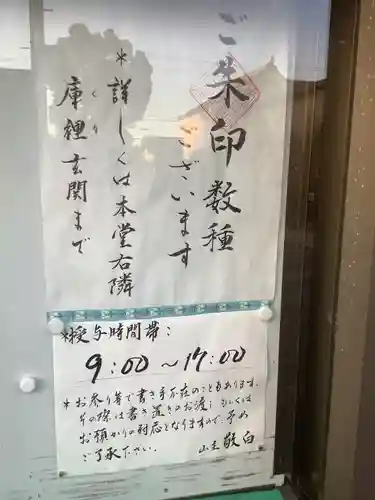 ご朱印数種
ございます
*詳しくは本堂右隣
くり
庫裡玄関まで
*授与時間帯：
9:00〜17:00
*お参り等で書き手不在のこともあります。
その際は書き置きのお渡し もしくは
お預かりの対応となりますので、予め
ご了承下さい。
山主 敬白